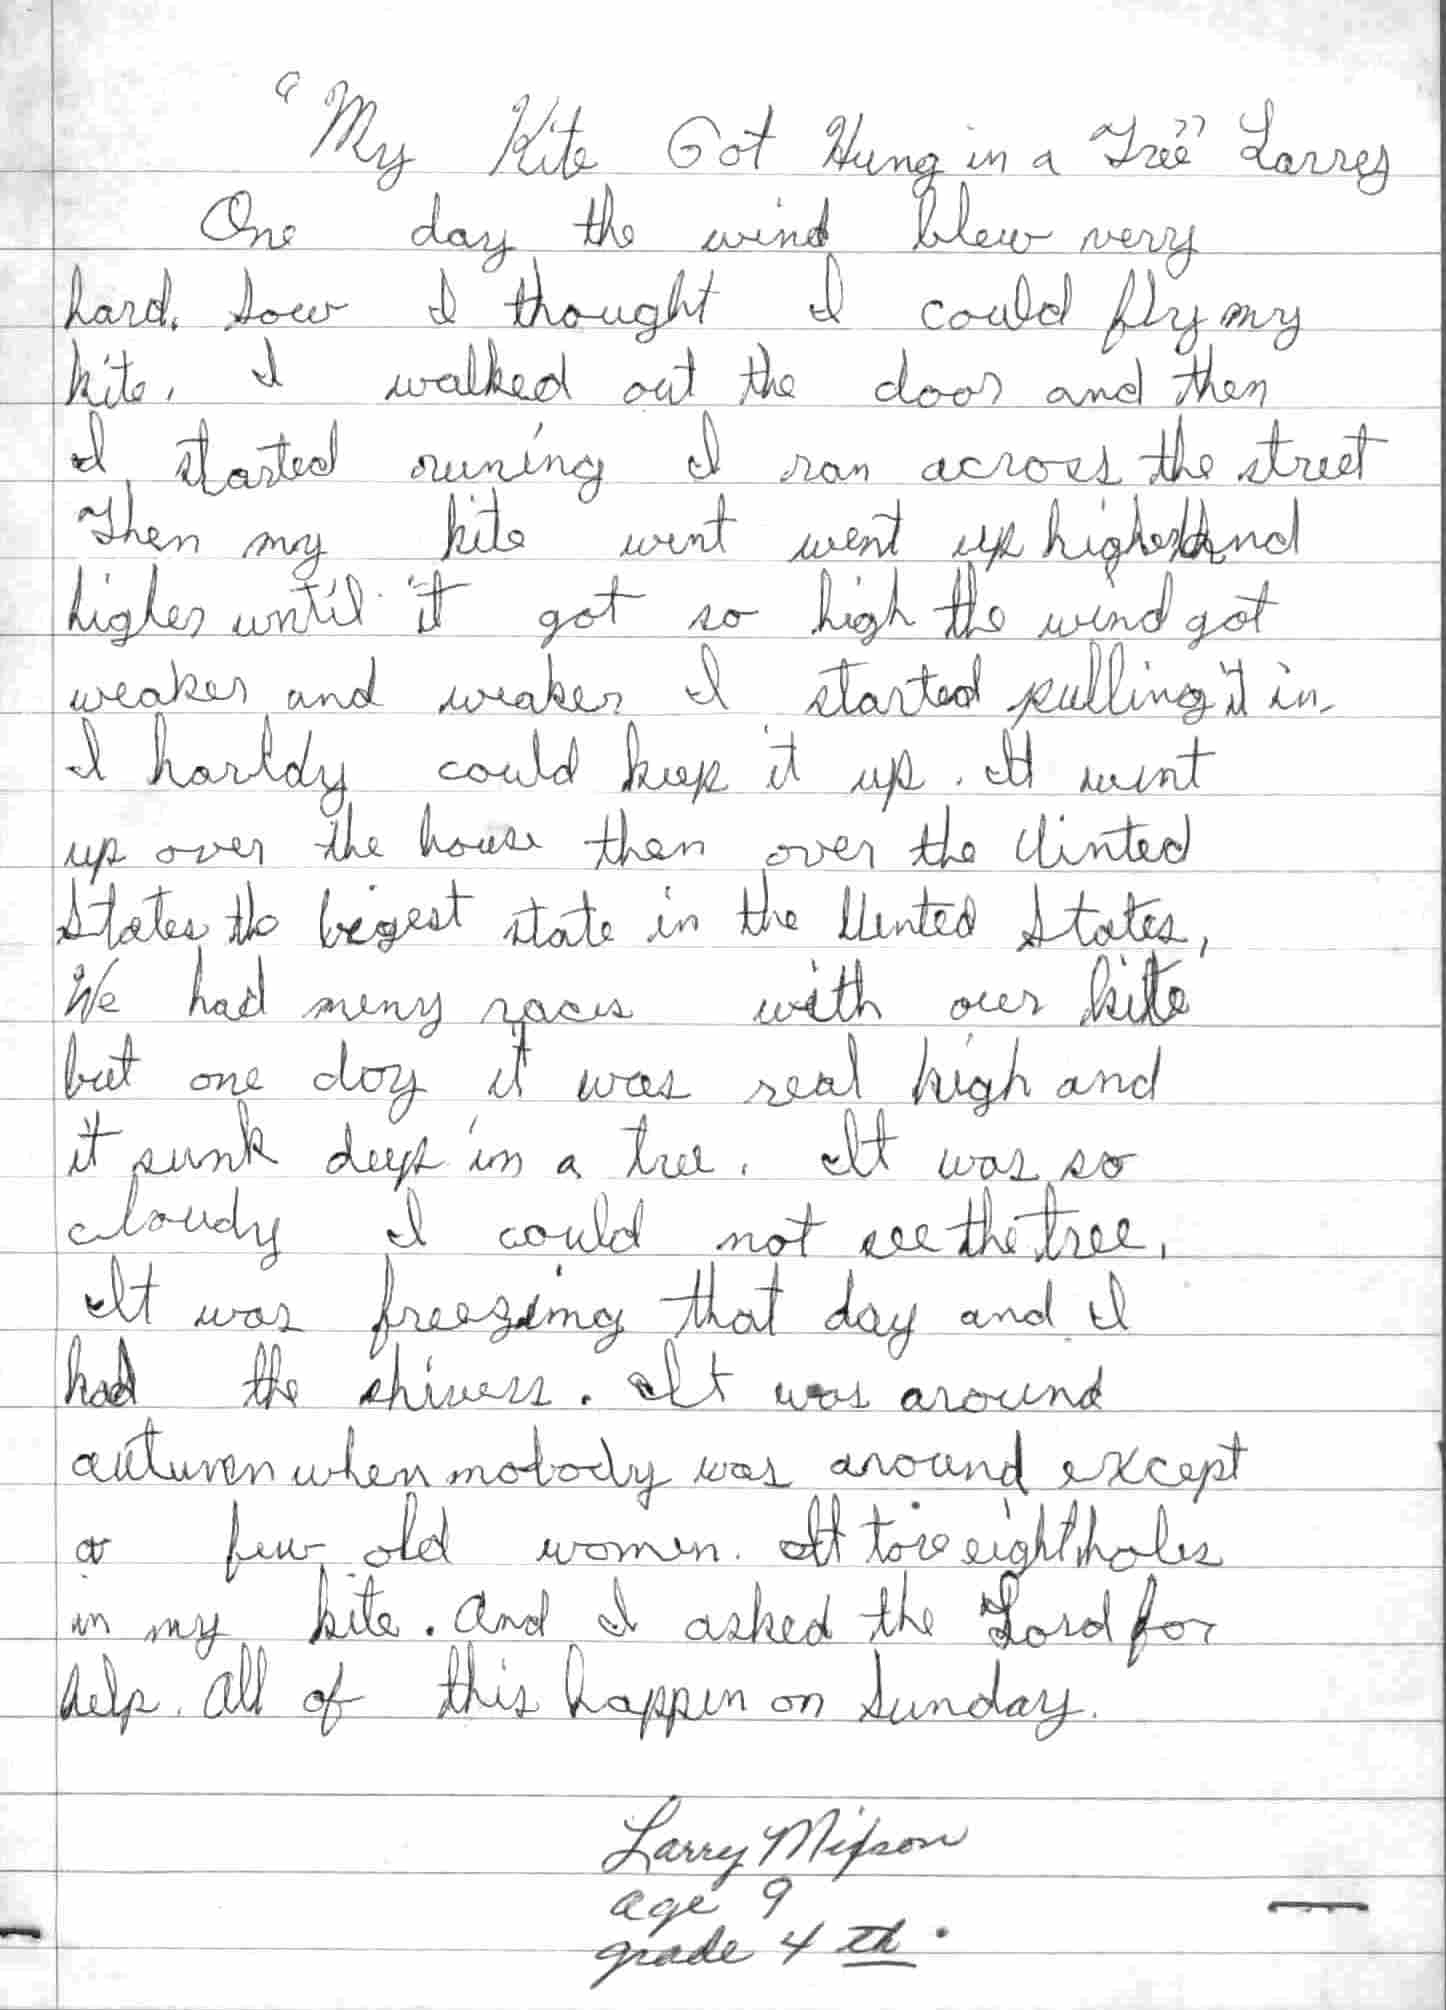 "My Kite Got Hung in a Tree" Larrey
One day the wind blew very
hard. Sow I thought I could fly my
kite. I walked out the door and then
I started runing I ran across the street
Then my kite went went up higher and
higher until it got so high the wind got
weaker and weaker I started pulling it in.
I harldy could keep it up. It went
up over the house then over the Uinted
States the bigest state in the Uented States,
We had meny races with our kite
but one day it was real high and
it sunk deep in a tree. It was so
cloudy I could not see the tree.
It was freezing that day and I
had the shivers. It was around
autumn when nobody was around except
a few old women. It tore eight holes
in my kite. And I asked the Lord for
help. All of this happen on Sunday.
Larry
age 9
grade 4 th.